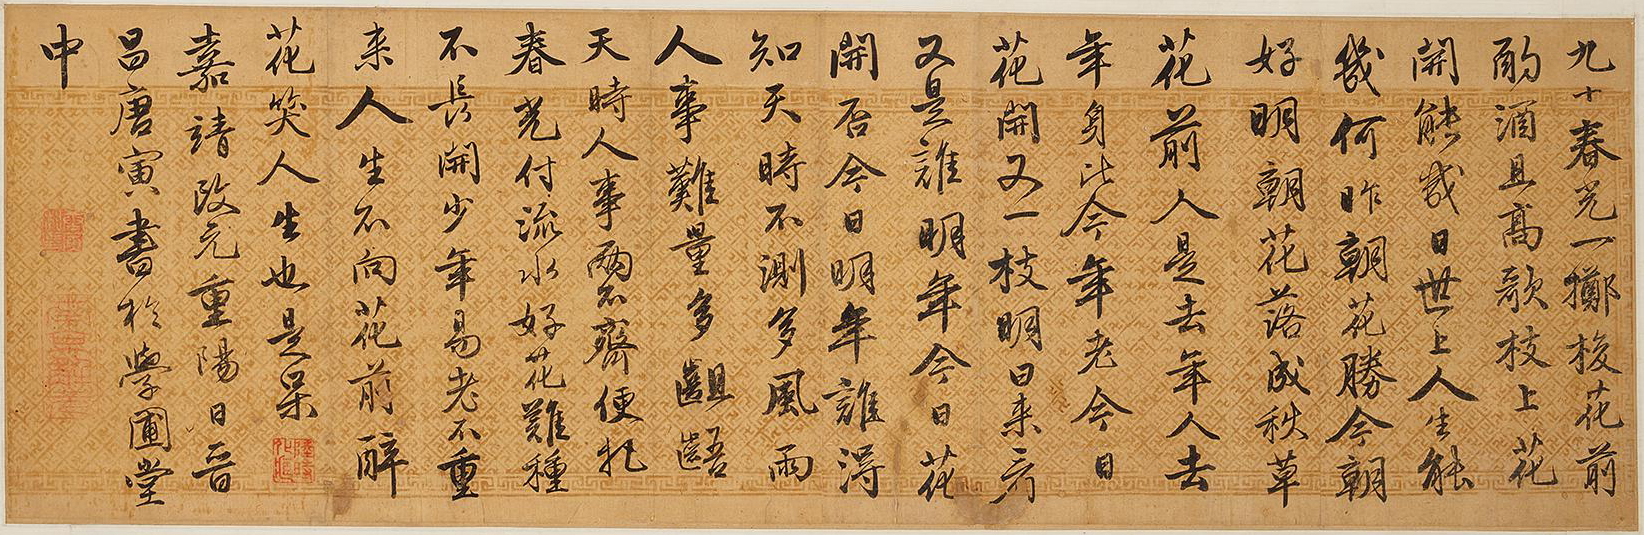 九十春光一擲梭花前
酌酒且高歌枝上花
開能幾日世上人生能
幾何昨朝花勝今朝
好明朝花落成秋草
花前人是去年人去
年身比今年老今日
花開又一枝明日来看
又是誰明年今日花
開否今日明年誰得
知天時不測多風雨
人事難量多齟齬
天時人事兩不齊便把
春光付流水好花難種
不長開少年易老不重
来人生不向花前醉
花笑人生也是呆
嘉靖改元重陽日晉
昌唐寅書於學圃堂
中